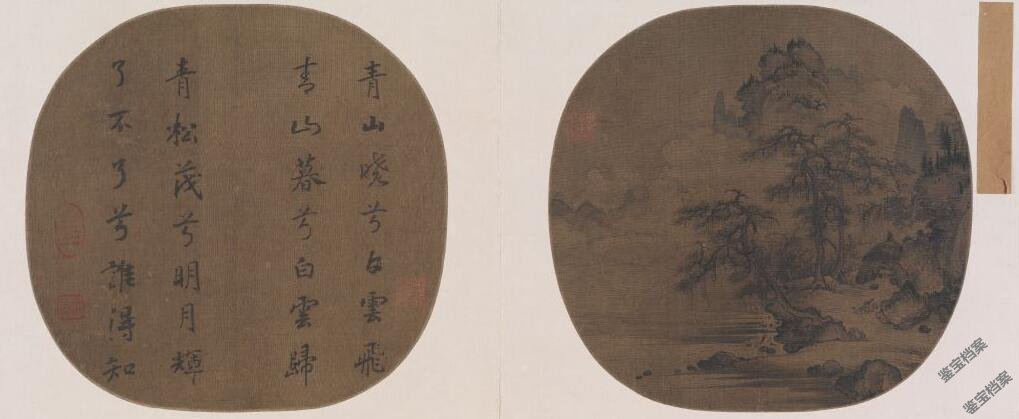 青山晓兮白雲飛
青山暮兮白雲歸
青松茂兮明月輝
了不了兮誰得知
鉴宝档案
鉴宝档案